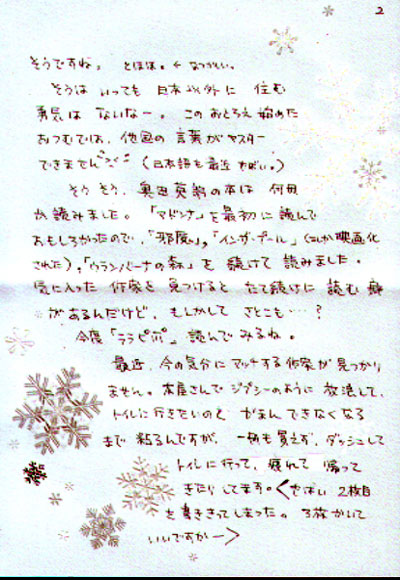 2
そうですね。 とほほ。← なつかしい。
そうは いっても 日本以外に 住む
勇気は ないなー。 このおとろえ始めた
おつむでは、他国の 言葉がマスター
できません (日本語も最近 やばい。)
そう そう、奥田英朗の本は 何冊
か読みました。 「マドンナ」を最初に 読んで
おもしろかったので、「邪魔」、「イン・ザ・プール」(たしか映画化
された)、「ウランバーナの森」を 続けて 読みました。
気に入った 作家を 見つけると たて続けに 読む 癖
があるんだけど、もしかして さとこも…?
今度 「ララピポ」 読んでみるね。
最近、今の気分に マッチする作家が 見つかり
ません。 本屋さんで ジプシーのように 放浪して、
トイレに行きたいのも がまん できなくなる
まで 粘るんですが、 一冊も買えず、ダッシュして
トイレに行って、疲れて 帰って
きたり してます。< やばい 2枚目
を書ききってしまった。 3枚かいて
いいですかー>